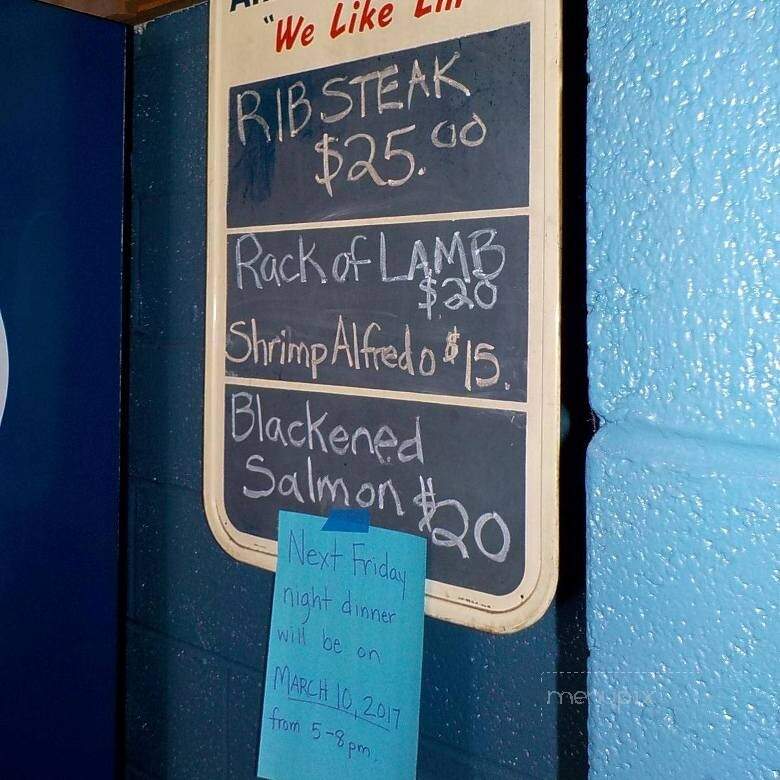 "We Like
RIB STEAK
$25.00
Rack of LAMB
$20
Shrimp Alfredo $15.
Blackened
Salmon $20
Next Friday
night dinner
will be on
MARCH 10, 2017
from 5-8pm.
menupix